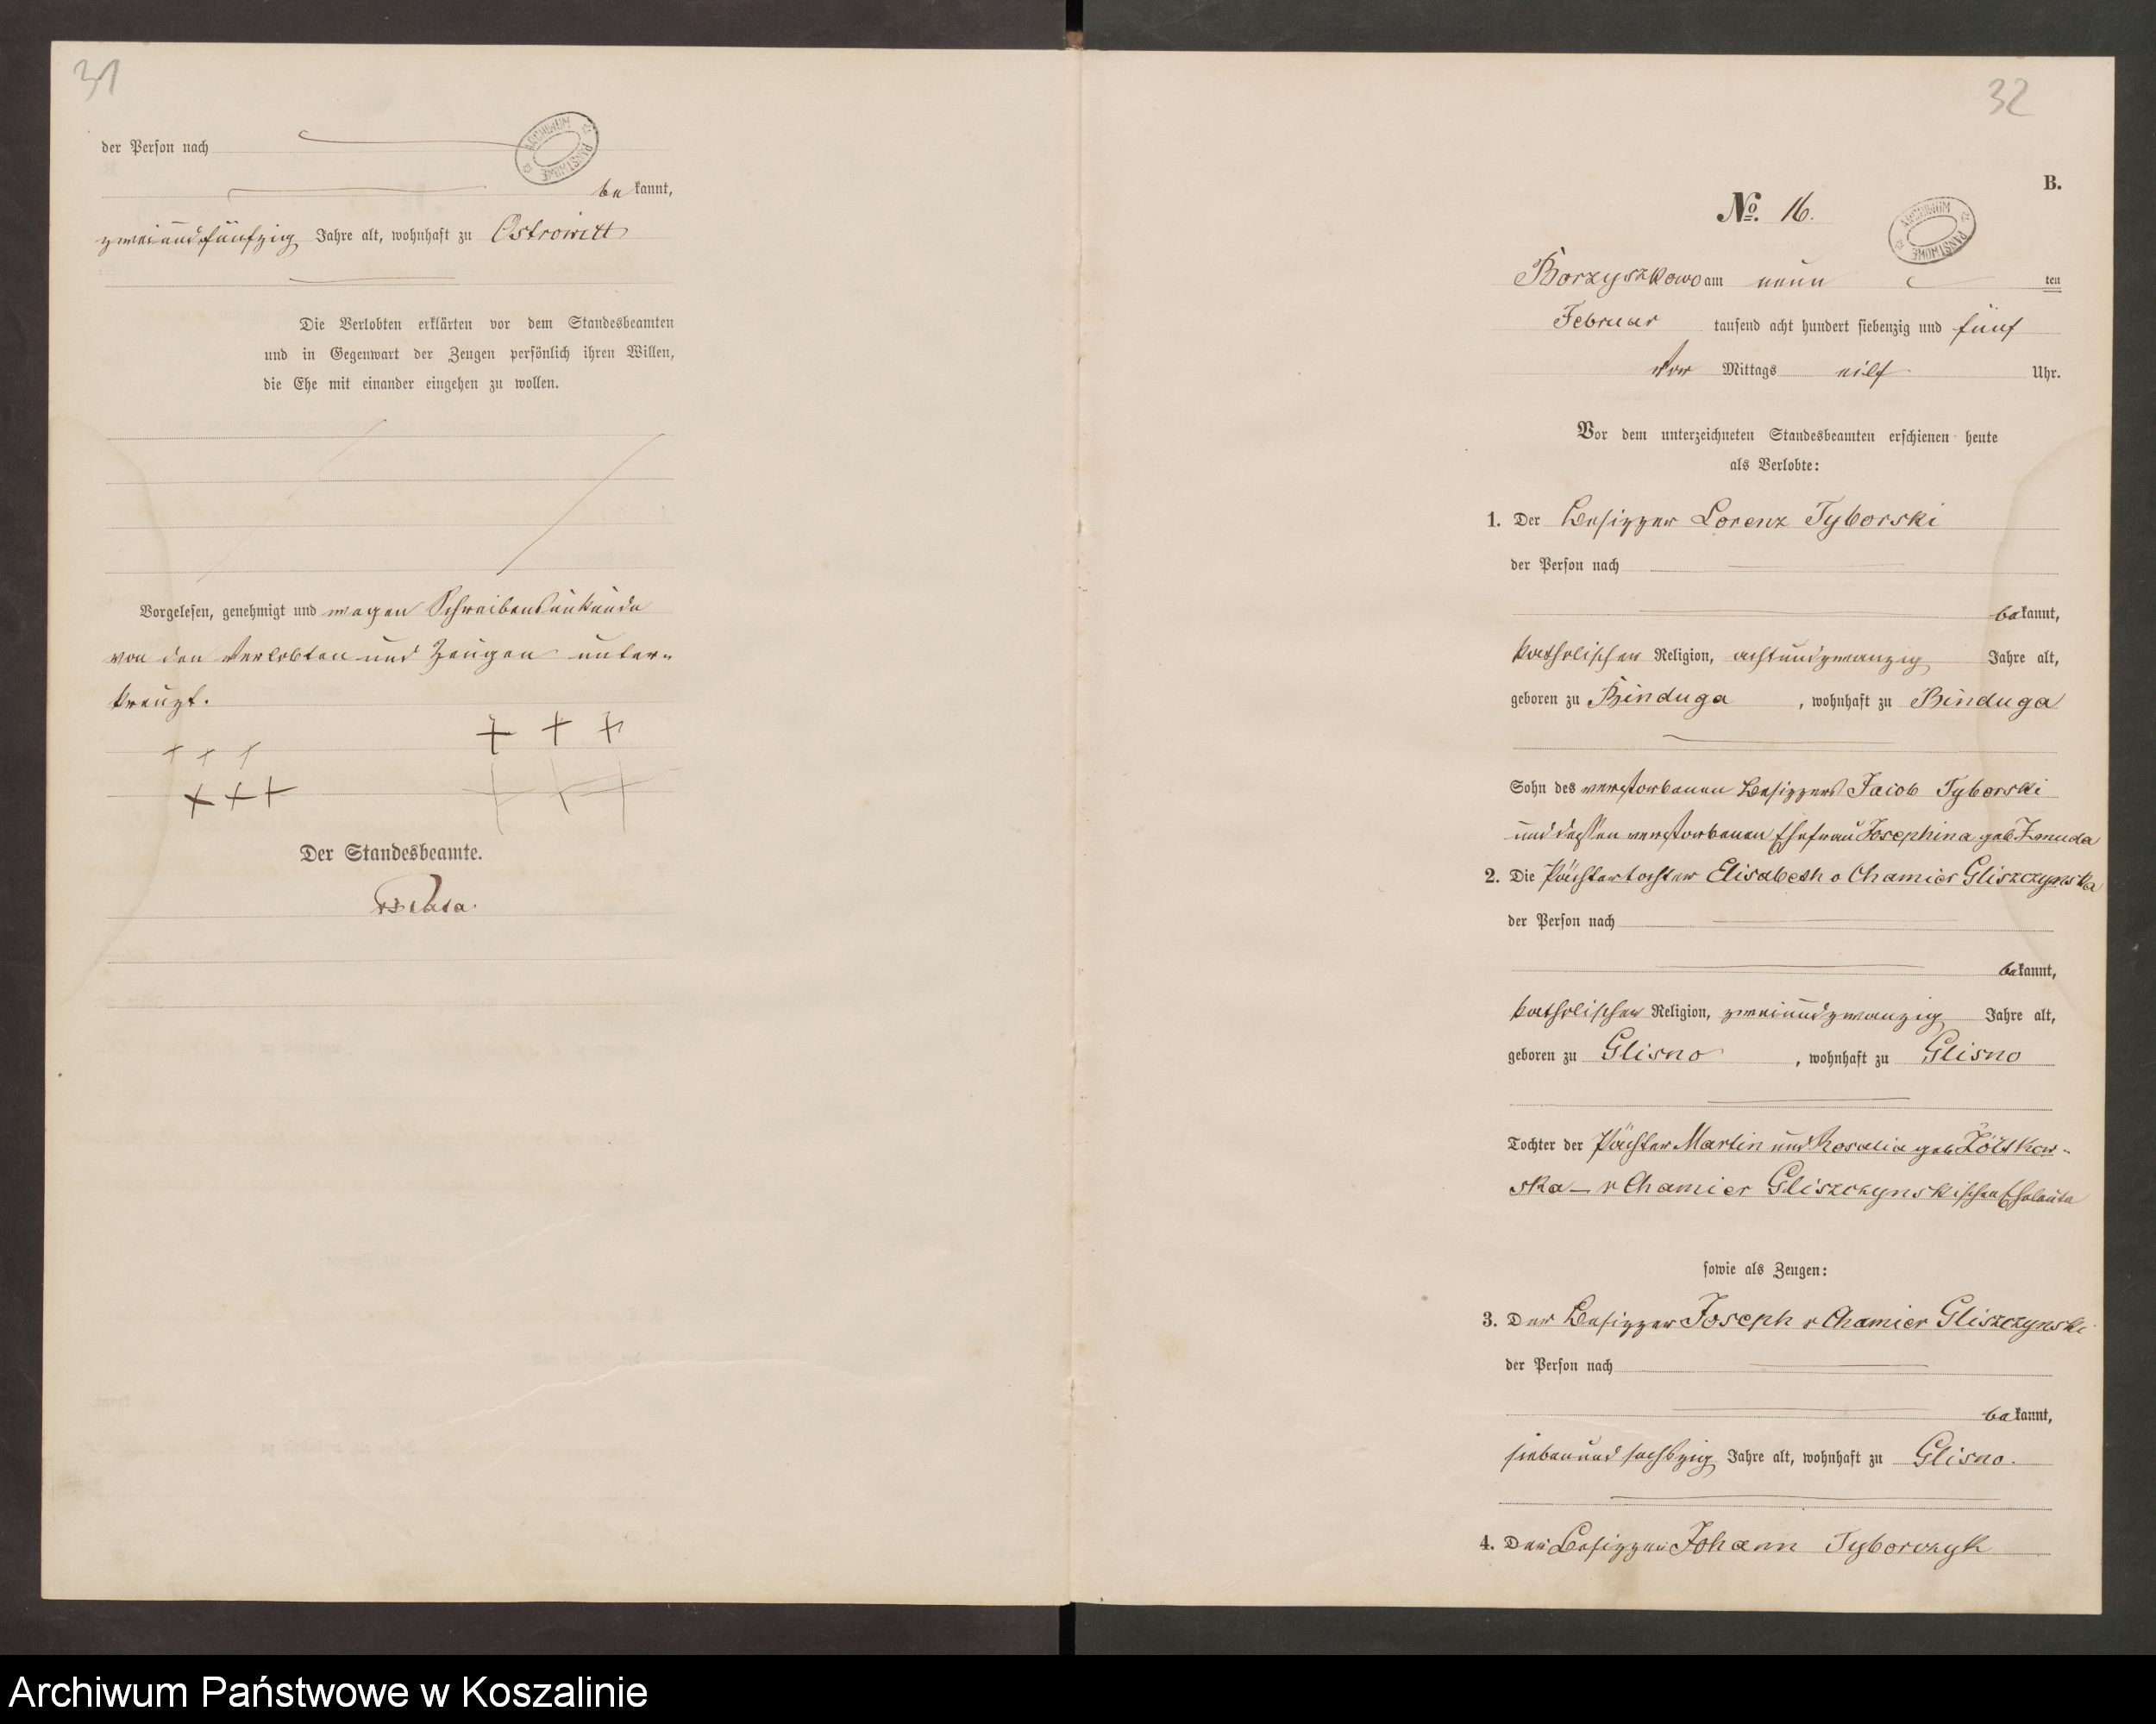 31
der Person nach
ARCHIWUM PAŃSTWOWE
bekannt,
zweiundfünfzig Jahre alt, wohnhaft zu Ostrowitt
Die Verlobten erklärten vor dem Standesbeamten
und in Gegenwart der Zeugen persönlich ihren Willen,
die Ehe mit einander eingehen zu wollen.
Vorgelesen, genehmigt und wegen Schreibensunkunde
von den Verlobten und Zeugen unter-
kreuzt.
+ + + + + +
+ + + + + +
Der Standesbeamte.
32
B.
No. 16.
ARCHIWUM PAŃSTWOWE
Borzyszkowo am neun ten
Februar tausend acht hundert siebenzig und fünf
Vor Mittags eilf Uhr.
Vor dem unterzeichneten Standesbeamten erschienen heute
als Verlobte:
1. Der Besitzer Lorenz Tyborski
der Person nach
bekannt,
katholischer Religion, achtundzwanzig Jahre alt,
geboren zu Binduga, wohnhaft zu Binduga
Sohn des verstorbenen Besitzers Jacob Tyborski
und dessen verstorbenen Ehefrau Josephina geb Zmuda
2. Die Pächtertochter Elisabeth v Chamier Gliszczynska
der Person nach
bekannt,
katholischer Religion, zweiundzwanzig Jahre alt,
geboren zu Glisno, wohnhaft zu Glisno
Tochter der Pächter Martin und Rosalia geb
ska - v Chamier Gliszczynskischen Eheleute
sowie als Zeugen:
3. Der Besitzer Joseph v Chamier Gliszczynski
der Person nach
bekannt,
siebenundsechszig Jahre alt, wohnhaft zu Glisno.
4. Der Besitzer Johann Tyborczyk
Archiwum Państwowe w Koszalinie